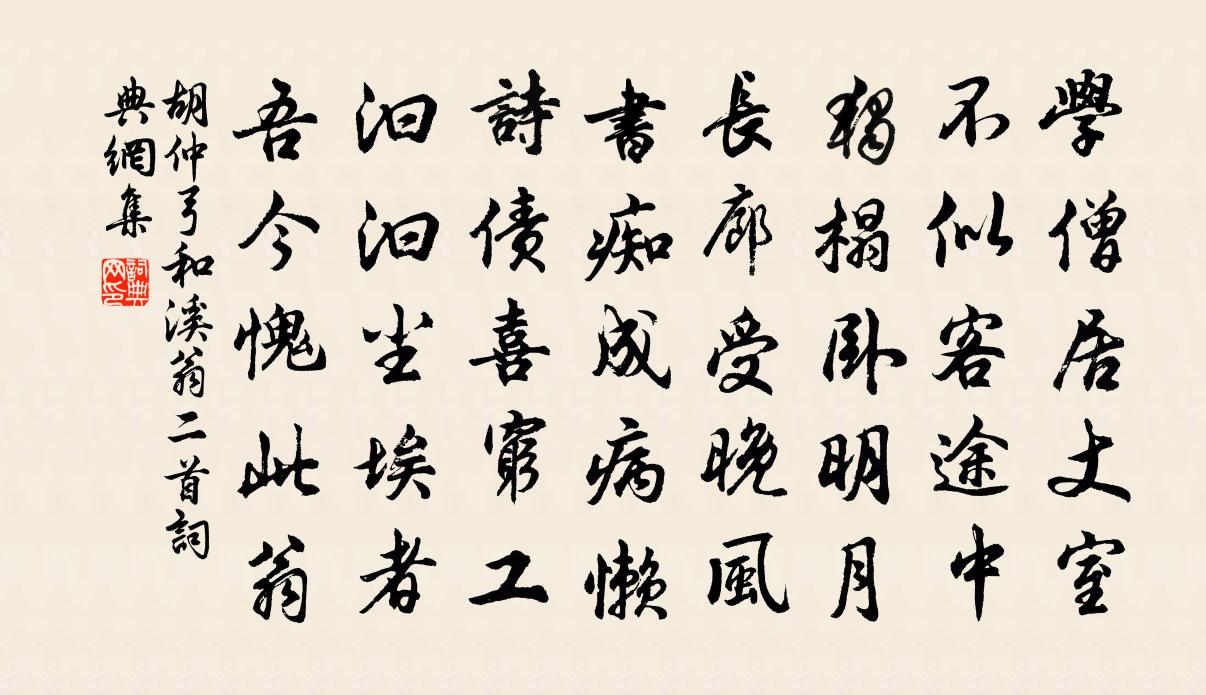 學僧居丈室
不似客途中
獨榻臥明月
長廊受晚風
書痴成病懶
詩債喜窮工
汩汩尘埃者
吾今愧此翁
胡仲弓和溪翁二首詞
典網集
詞典
网印